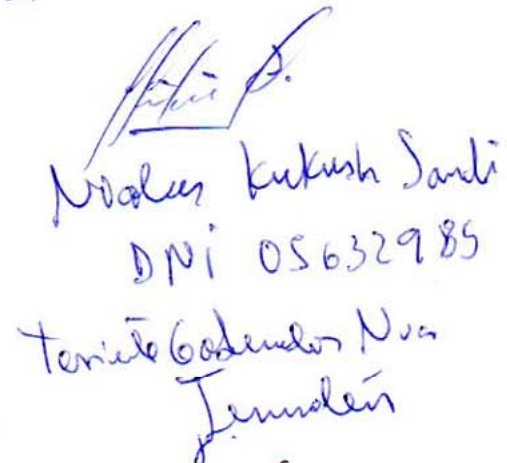 Nicolas Kukush Sandi
DNI 05632985
Teniente Gobernador Nva
Jerusalén